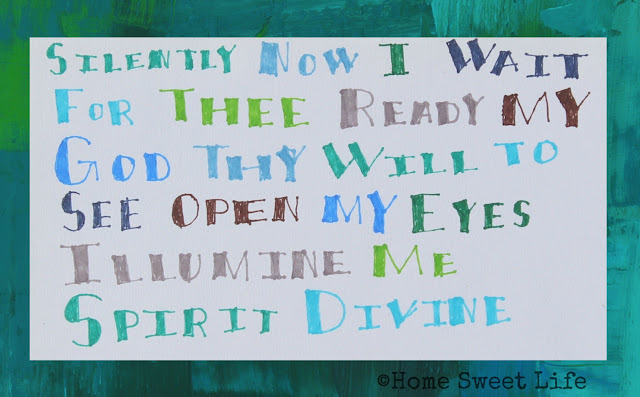 Silently Now I Wait
For Thee Ready My
God Thy Will to
See Open My Eyes
Illumine Me
Spirit Divine
©Home Sweet Life